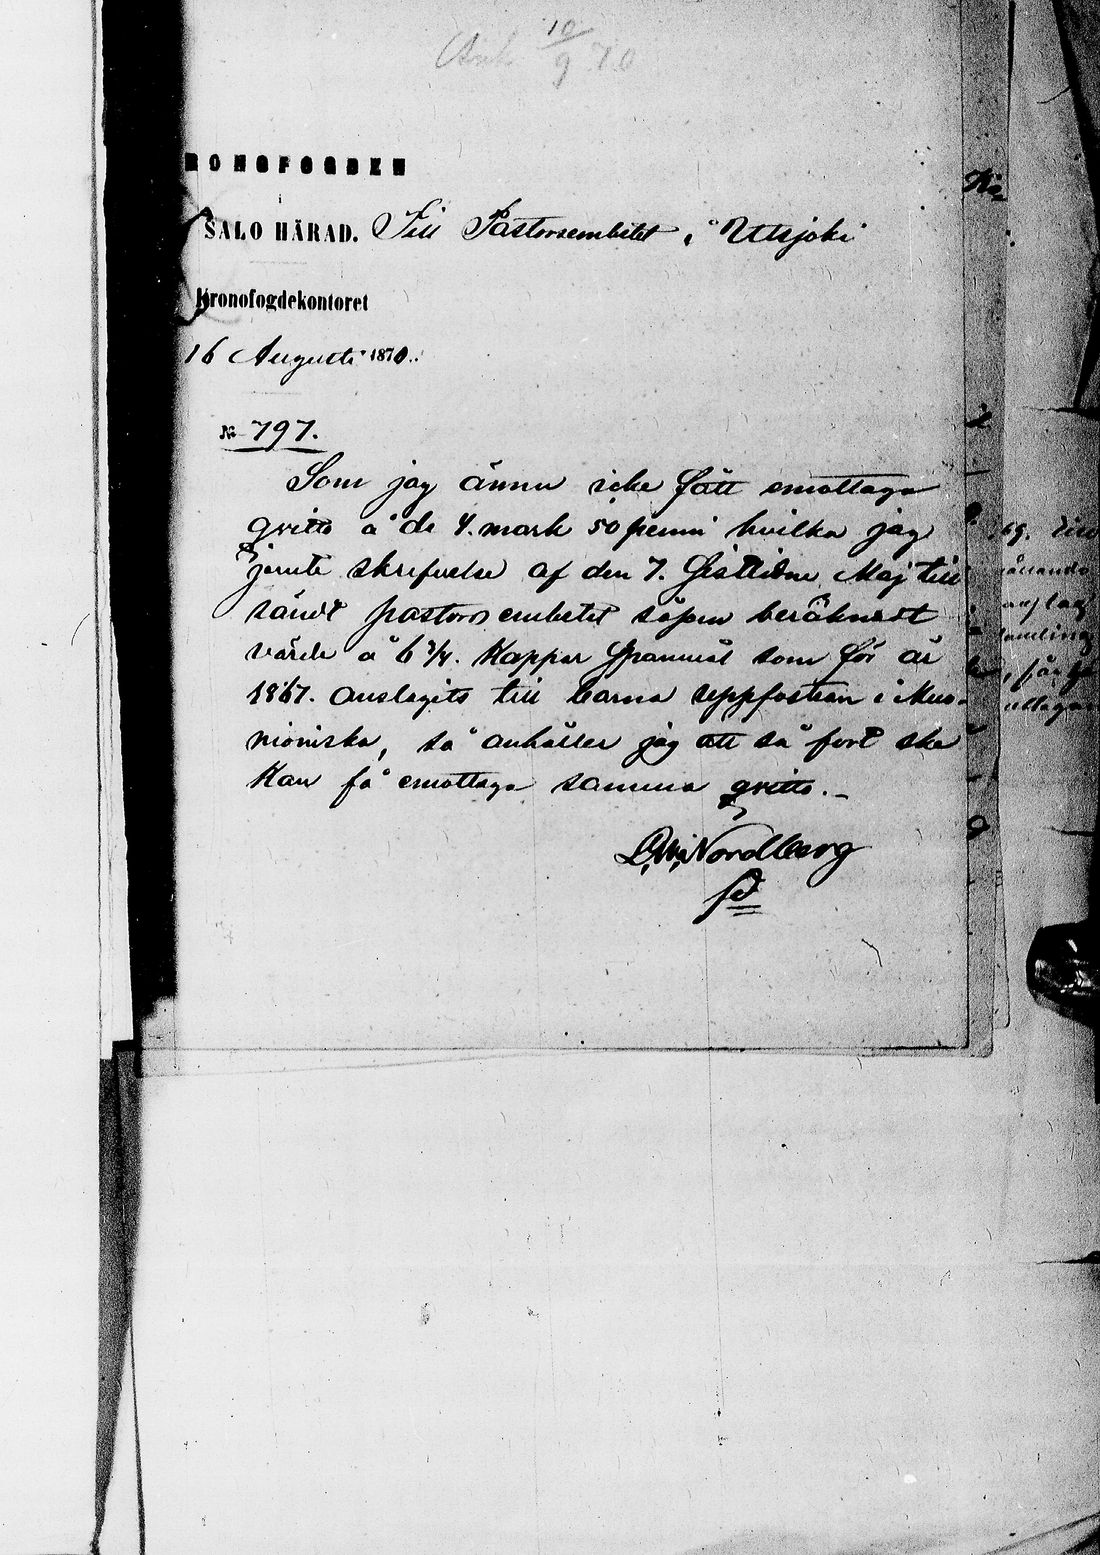 Ank 10/9 70
KRONOFOGDEN
SALO HÄRAD. Till Pastorsembetet i Utsjoki
Kronofogdekontoret
16 Augusti 1870.
№ 797.
Som jag ännu icke fått emottaga
qvitto å de 4. mark 50 penni hvilka jag
jemte skrifvelse af den 7. sistlidne Maj till
sändt pastorsembetet såsom beräknadt
värde å 6 3/4. Kappar spannmål som för år
1867. anslagits till barna uppfostran i Muo-
nioniska, så anhåller jag att så fort ske
kan få emottaga samma qvitto.-
Nordberg